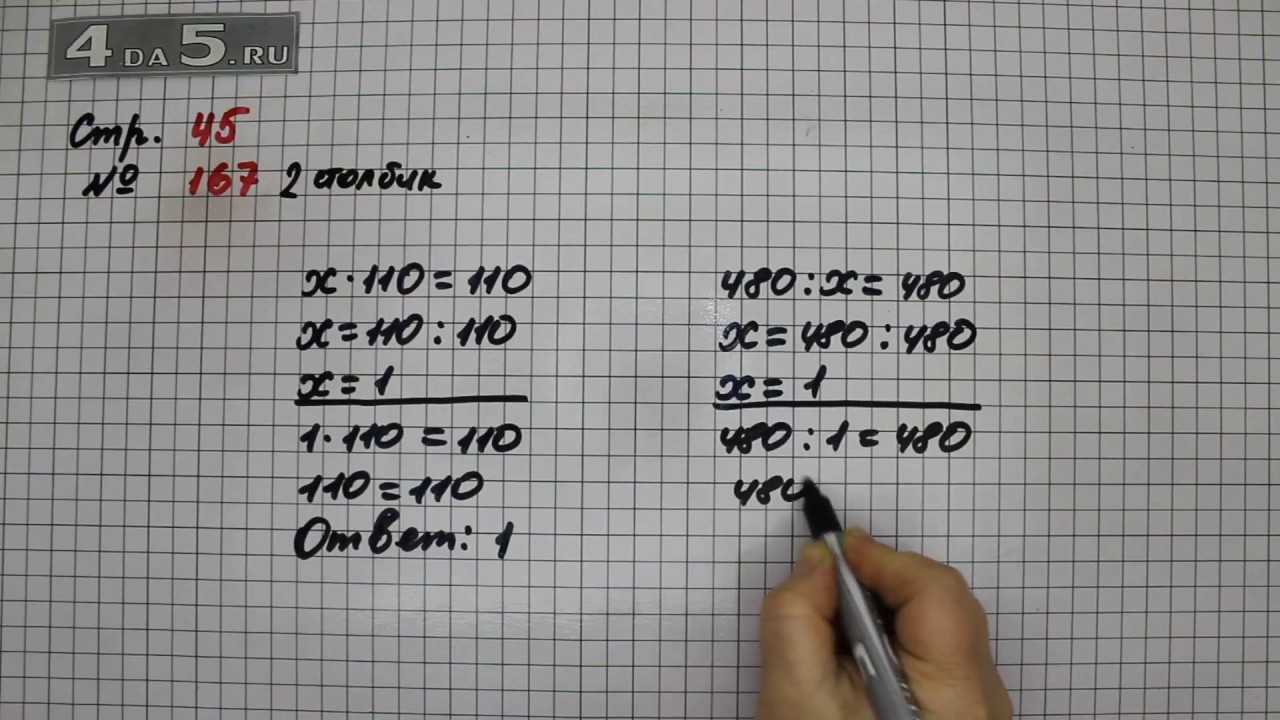 4DA5.RU
Стр. 45
№ 167 2 столбик
x · 110 = 110
x = 110 : 110
x = 1
1 · 110 = 110
110 = 110
Ответ: 1
480 : x = 480
x = 480 : 480
x = 1
480 : 1 = 480
480